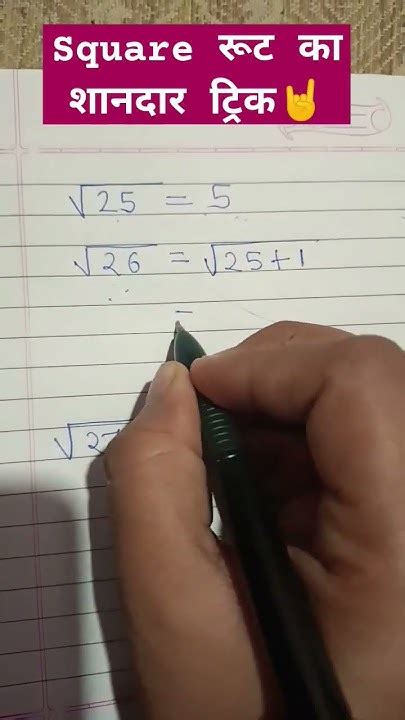 Square रूट का
शानदार ट्रिक🤘
√25 = 5
√26 = √25+1
=